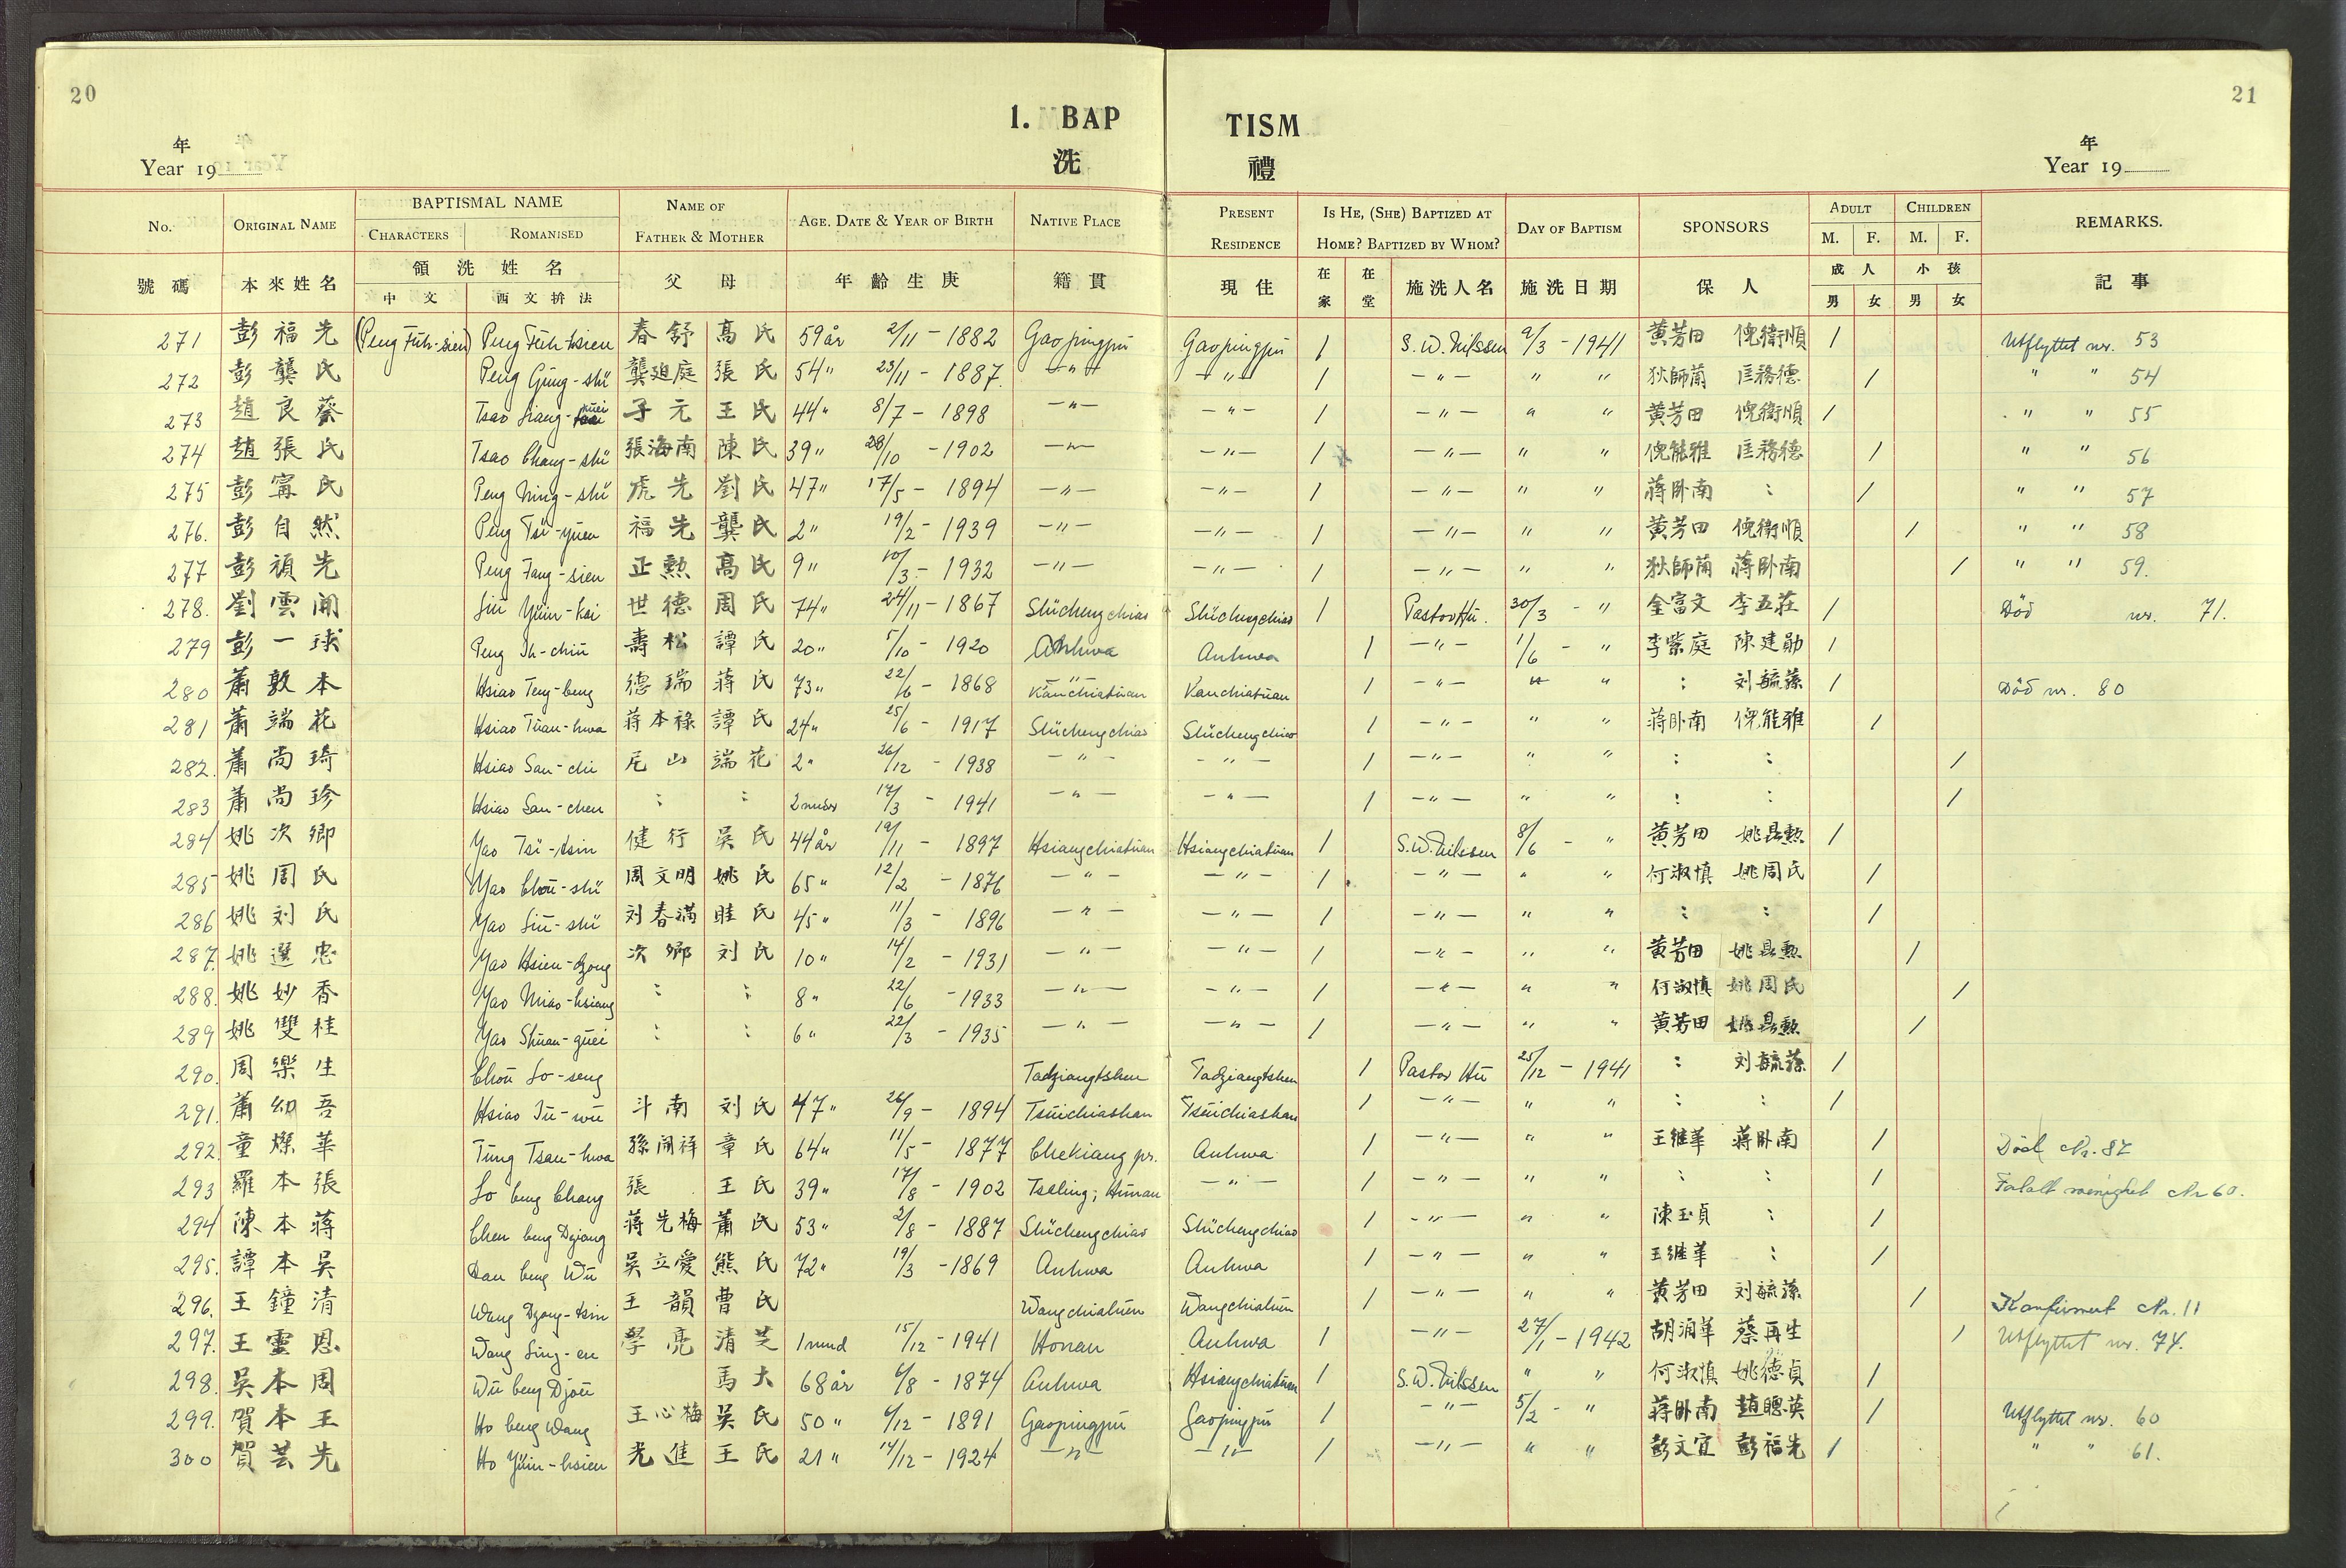 20
21
1. BAP
TISM
洗
禮
年
Year 19
年
Year 19
No. ORIGINAL NAME BAPTISMAL NAME NAME OF FATHER & MOTHER AGE. DATE & YEAR OF BIRTH NATIVE PLACE PRESENT RESIDENCE IS HE, (SHE) BAPTIZED AT HOME? BAPTIZED BY WHOM? DAY OF BAPTISM SPONSORS ADULT CHILDREN REMARKS.
CHARACTERS ROMANISED M. F. M. F.
號碼 本來姓名 領洗姓名 父 母 年齡生庚 籍貫 現住 在家 在堂 施洗人名 施洗日期 保人 成人 小孩 記事
中文 西文拚法 男 女 男 女
271 彭福先 (Peng Fuh-sien) Peng Fuh-hsien 春舒 高氏 59 år 2/11 - 1882 Gaopingpu Gaopingpu 1 S. W. Nilssen 9/3 - 1941 黄芳田 倪衛順 1 Utflyttet nr. 53
272 彭龔氏 Peng Gung-shï 龔廷庭 張氏 54 " 23/11 - 1887. -"- -"- 1 -"- " " 狄師蘭 匡務德 1 " " 54
273 趙良蔡 Tsao Liang- 子元 王氏 44 " 8/7 - 1898 -"- -"- 1 -"- " " 黄芳田 倪衛順 1 " " 55
274 趙張氏 Tsao Chang-shï 張海南 陳氏 39 " 28/10 - 1902 -"- -"- 1 -"- " " 倪能雅 匡務德 1 " " 56
275 彭甯氏 Peng Ning-shï 虎先 劉氏 47 " 17/5 - 1894 -"- -"- 1 -"- " " 蔣卧南 : 1 " " 57
276. 彭自然 Peng Tsï-yüen 福先 龔氏 2 " 19/2 - 1939 -"- -"- 1 -"- " " 黄芳田 倪衛順 1 " " 58
277 彭禎先 Peng Fang-sien 正勲 高氏 9 " 10/3 - 1932 -"- -"- 1 -"- " " 狄師蘭 蔣卧南 1 " " 59.
278. 劉雲開 Liu Yüin-kai 世德 周氏 74 " 24/11 - 1867 Shïchengchiao Shïchengchiao 1 Pastor Hu. 30/3 - " 金富文 李五莊 1 Död nr. 71.
279 彭一球 Peng Ih-chiu 壽松 譚氏 20 " 5/10 - 1920 Anhwa Anhwa 1 -"- 1/6 - " 李紫庭 陳建勛 1
280 蕭敦本 Hsiao Teng-beng 德瑞 蔣氏 73 " 22/6 - 1868 Kanchiatuan Kanchiatuan 1 -"- " " : 刘毓蓀 1 Död nr. 80
281 蕭端花 Hsiao Tüan-hwa 蒋本祿 譚氏 24 " 25/6 - 1917 Shïchengchiao Shïchengchiao 1 -"- " " 蒋卧南 倪能雅 1
282. 蕭尚琦 Hsiao San-chi 尼山 端花 2 " 26/12 - 1938 -"- -"- 1 -"- " " : : 1
283 蕭尚珍 Hsiao San-chen : : 17/3 - 1941 -"- -"- 1 -"- " " : : 1
284 姚次卿 Yao Tsï-tsin 健行 吳氏 44 år 19/11 - 1897 Hsiangchiatuan Hsiangchiatuan 1 S. W. Nilssen 8/6 - " 黄芳田 姚昌勲 1
285 姚周氏 Yao Chou-shï 周文明 姚氏 65 " 12/2 - 1876 -"- -"- 1 -"- " " 何淑慎 姚周氏 1
286 姚刘氏 Yao Liu-shï 刘春滿 眭氏 45 " 11/3 - 1896 -"- -"- 1 -"- " " : : 1
287. 姚選忠 Yao Hsien-dzong 次卿 刘氏 10 " 14/2 - 1931 -"- -"- 1 -"- " " 黄芳田 姚昌勲 1
288. 姚妙香 Yao Miao-hsiang : : 8 " 22/6 - 1933 -"- -"- 1 -"- " " 何淑慎 姚周氏 1
289 姚雙桂 Yao Shuan-guei : : 6 " 22/3 - 1935 -"- -"- 1 -"- " " 黄芳田 姚昌勲 1
290. 周樂生 Chou Lo-seng Tadziangtshen Tadziangtshen 1 Pastor Hu 25/12 - 1941 : 刘毓蓀 1
291. 蕭幼吾 Hsiao Iu-wu 斗南 刘氏 47 " 26/9 - 1894 Tsuichiashan Tsuichiashan 1 -"- " " : : 1
292. 童燦華 Tung Tsan-hwa 孫開祥 章氏 64 " 11/5 - 1877 Chekiang pr. Anhwa 1 -"- " " 王继華 蔣卧南 1 Död Nr. 82
293 羅本張 Lo beng Chang 張 王氏 39 " 17/8 - 1902 Tseling, Hunan -"- 1 -"- " " : : 1 Nr 60.
294 陳本蔣 Chen beng Dziang 蒋先梅 蕭氏 53 " 2/8 - 1887 Shïchengchiao Shïchengchiao 1 -"- " " 陳玉貞 : 1
295. 譚本吳 Dan beng Wu 吳立愛 熊氏 72 " 19/3 - 1869 Anhwa Anhwa 1 -"- " " 王继華 : 1
296. 王鐘清 Wang Dzong-tsin 王韻 曹氏 Wangchialuen Wangchialuen 1 -"- " " 黄芳田 刘毓蓀 1 Konfirmert Nr. 11
297. 王靈恩 Wang Ling-en 學亮 清芝 1 mnd 15/12 - 1941 Honan Anhwa 1 -"- 27/1 - 1942 胡潤華 蔡再生 1 Utflyttet nr. 74.
298. 吳本周 Wu beng Djou 馬大 68 år 6/8 - 1874 Anhwa Hsiangchiatuan 1 S. W. Nilssen " " 何淑慎 姚德貞 1
299. 賀本王 Ho beng Wang 王心梅 吳氏 50 " 6/12 - 1891 Gaopingpu Gaopingpu 1 -"- 5/2 - " 蔣卧南 趙聰英 1 Utflyttet nr. 60
300 賀芸先 Ho Yüin-hsien 光進 王氏 21 " 14/12 - 1924 -"- -"- 1 -"- " " 彭文宜 彭福先 1 " " 61.